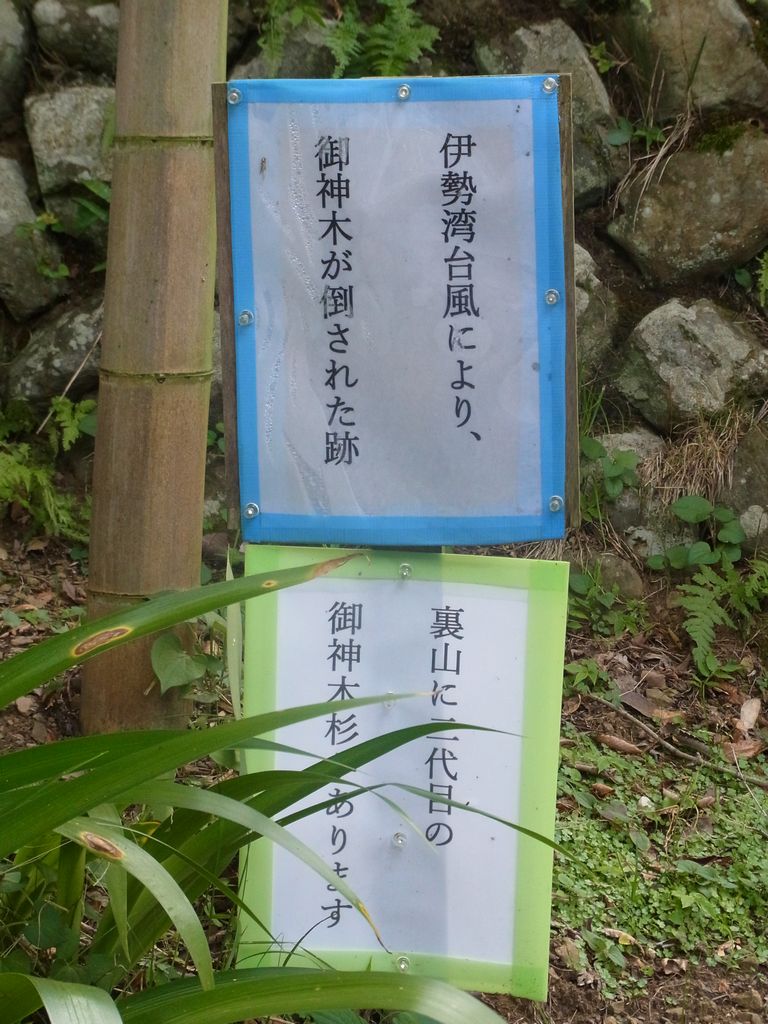 伊勢湾台風により、
御神木が倒された跡
裏山に二代目の
御神木杉 あります